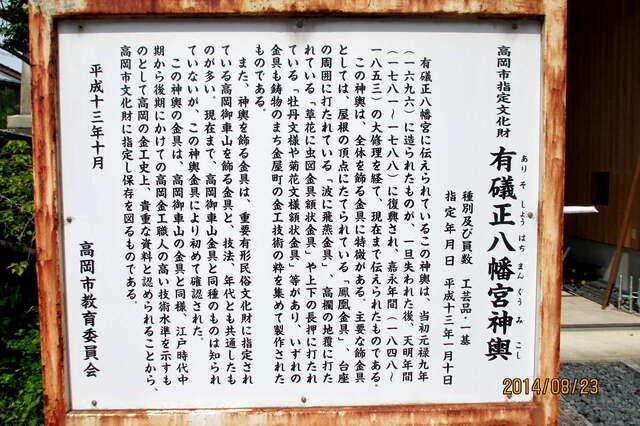 高岡市指定文化財
有礒正八幡宮神輿
ありそしょうはちまんぐうみこし
種別及び員数 工芸品・一基
指定年月日 平成十三年一月十日
有礒正八幡宮に伝えられているこの神輿は、当初元禄九年
（一六九六）に造られたものが、一旦失われた後、天明年間
（一七八一～一七八八）に復興され、嘉永年間（一八四八～
一八五三）の大修理を経て、現在まで伝えられたものである。
この神輿は、全体を飾る金具に特徴がある。主要な飾金具
としては、屋根の頂点にたてられている「鳳凰金具」、台座
の周囲に打たれている「波に飛燕金具」、高欄の地覆に打た
れている「草花に虫図金具額状金具」や上下の長押に打たれ
ている「牡丹文様や菊花文様額状金具」等があり、いずれの
金具も鋳物のまち金屋町の金工技術の粋を集めて製作された
ものである。
また、神輿を飾る金具は、重要有形民俗文化財に指定され
ている高岡御車山を飾る金具と、技法、年代とも共通したも
のが多い。現在まで、高岡御車山金具と同種のものは知られ
ていないが、この神輿金具により初めて確認された。
この神輿の金具は、高岡御車山の金具と同様、江戸時代中
期から後期にかけての高岡金工職人の高い技術水準を示すも
のとして高岡の金工史上、貴重な資料と認められることから、
高岡市文化財に指定し保存を図るものである。
平成十三年十月
高岡市教育委員会
2014/08/23